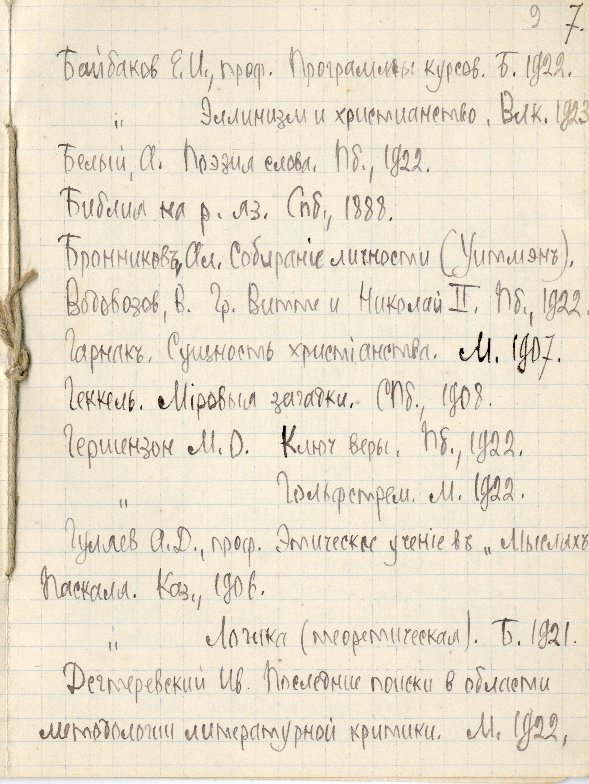 9 7.
Байбаков Е.И., проф. Программы курсов. Б. 1922.
" Эллинизм и христианство. Влк. 1923
Белый, А. Поэзия слова. Пб., 1922.
Библия на р. яз. Спб., 1888.
Бронниковъ, Ал. Собираніе личности (Уитмэнъ).
Водовозов, В. Гр. Витте и Николай II. Пб., 1922.
Гарнакъ. Сущность христіанства. М. 1907.
Геккель. Міровыя загадки. СПб., 1908.
Гершензон М. О. Ключ веры. Пб., 1922.
" Гольфстрем. М. 1922.
Гуляев А.Д., проф. Этическое ученіе въ „Мысляхъ
Паскаля. Каз., 1906.
" Логика (теоретическая). Б. 1921.
Дегтеревский Ив. Последние поиски в области
методологии литературной критики. М. 1922,